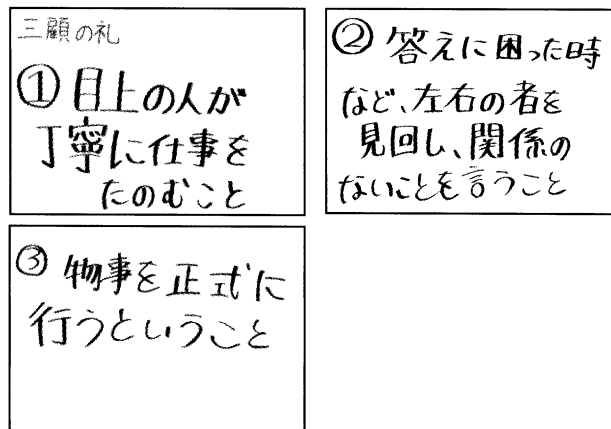 三顧の礼
①目上の人が
丁寧に仕事を
たのむこと
②答えに困った時
など、左右の者を
見回し、関係の
ないことを言うこと
③物事を正式に
行うということ